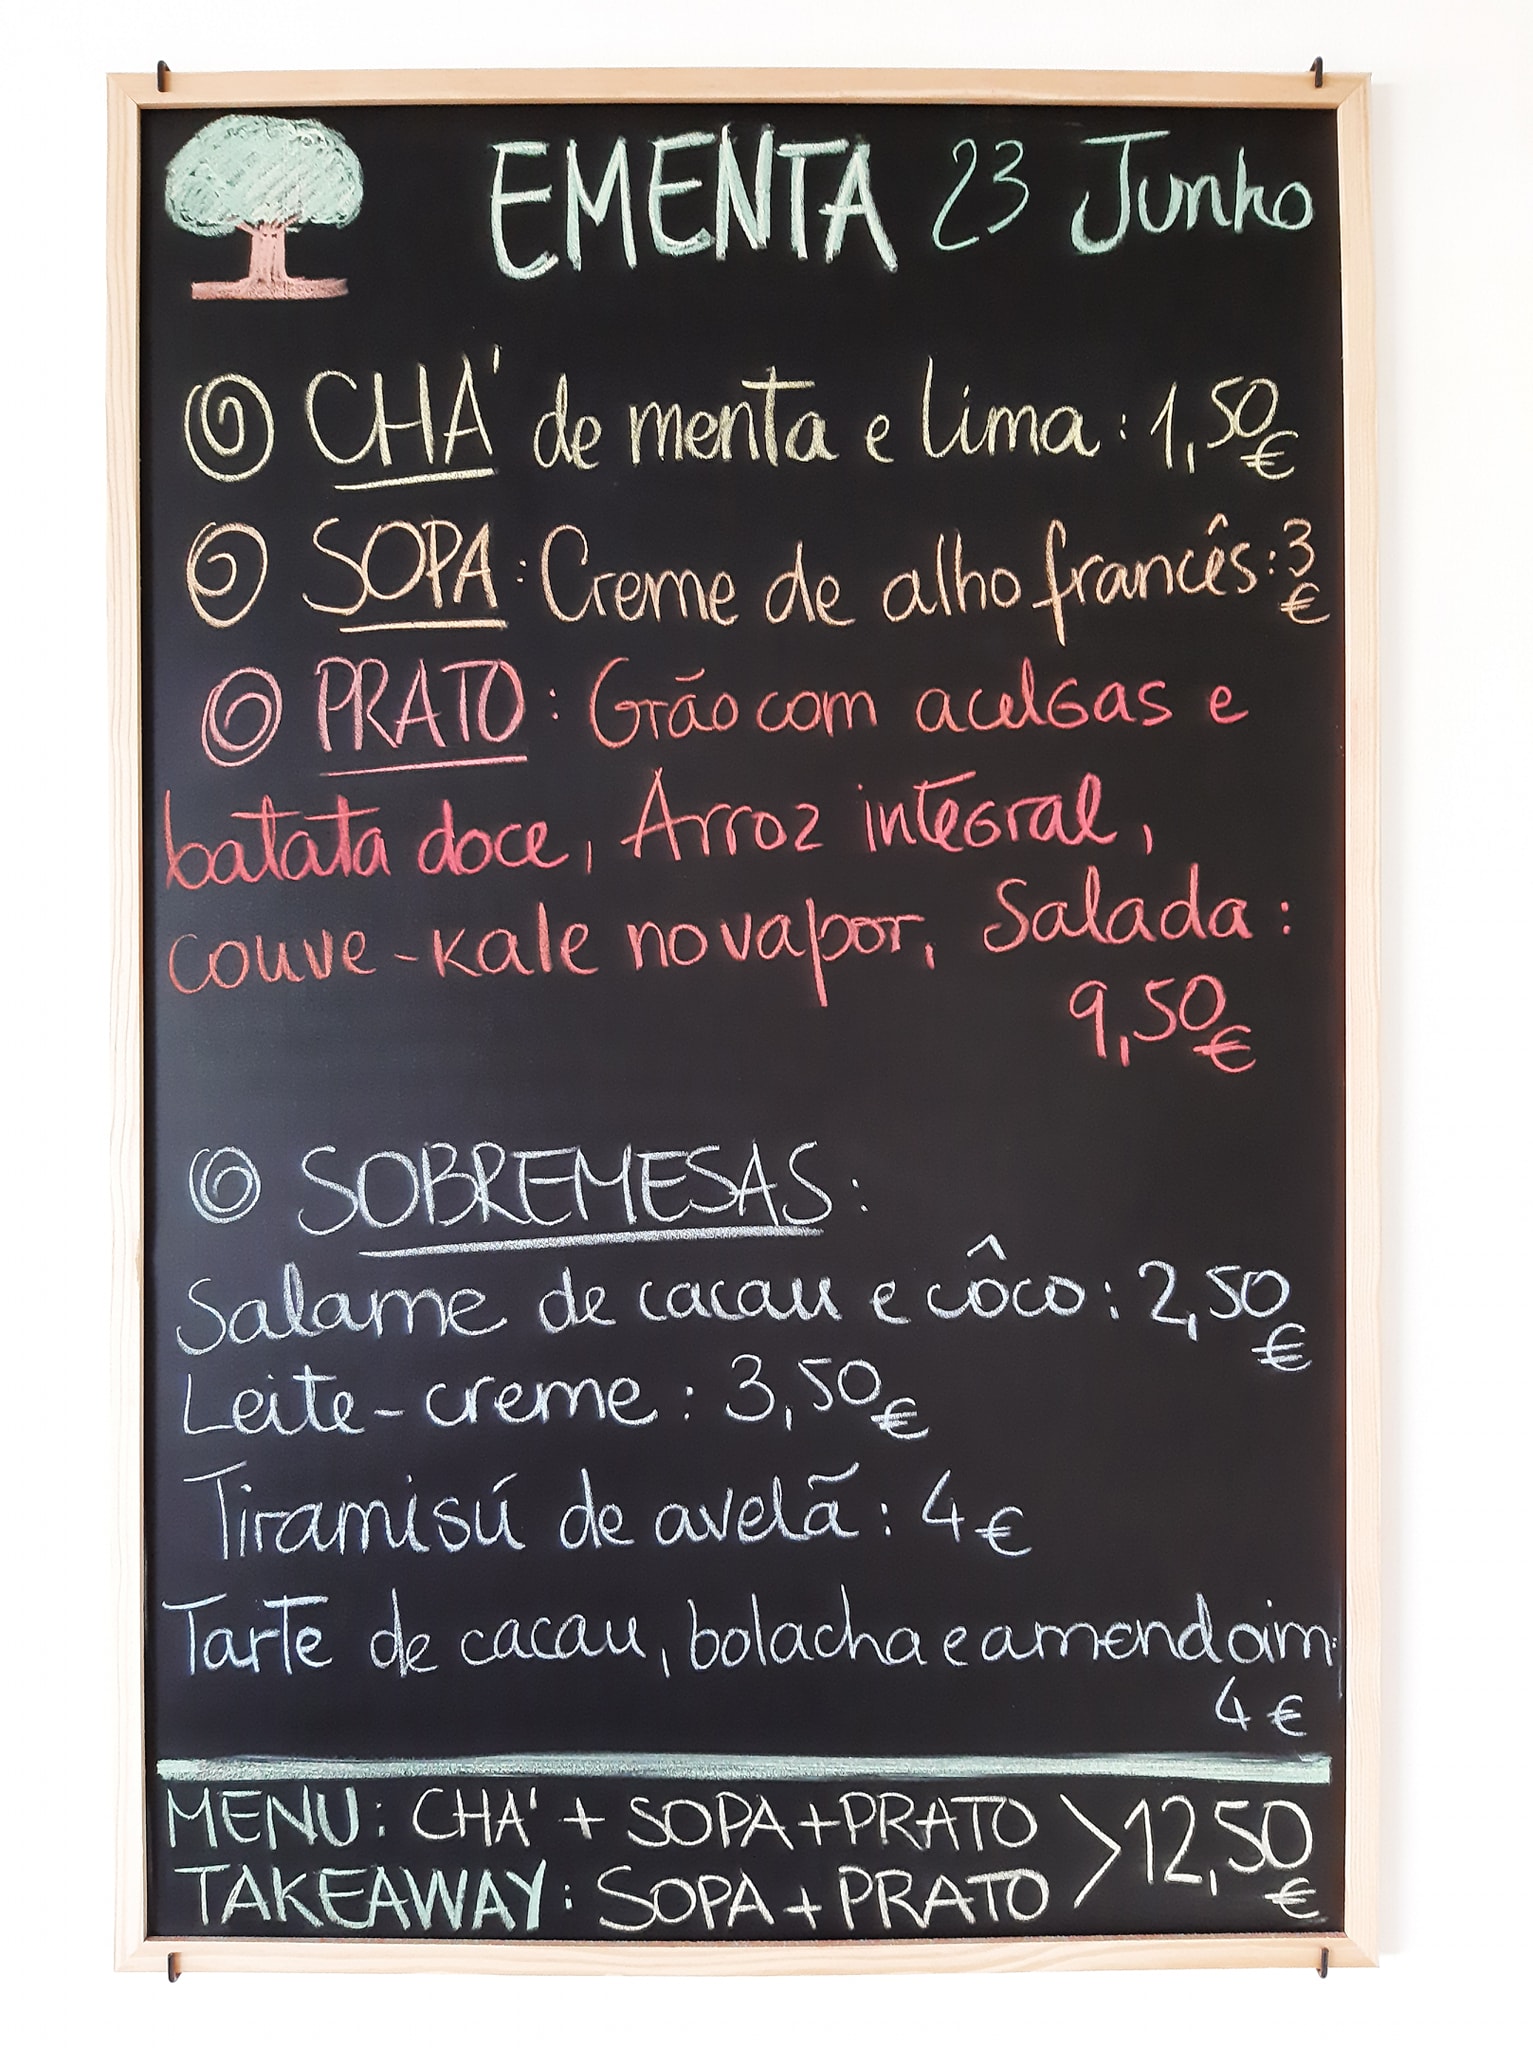 EMENTA 23 Junho
CHÁ de menta e lima: 1,50€
SOPA: Creme de alho francês: 3€
PRATO: Grão com acelgas e
batata doce, Arroz integral,
couve-kale no vapor, Salada:
9,50€
SOBREMESAS:
Salame de cacau e côco: 2,50€
Leite-creme: 3,50€
Tiramisú de avelã: 4€
Tarte de cacau, bolacha e amendoim:
4€
MENU: CHÁ + SOPA + PRATO > 12,50€
TAKEAWAY: SOPA + PRATO